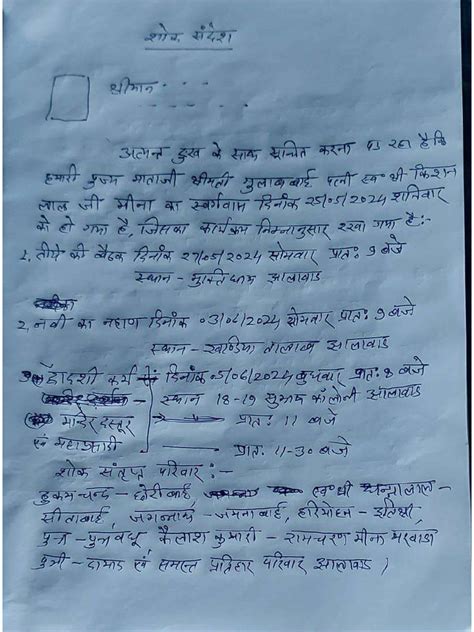 शोक संदेश
श्रीमान . . .
अत्यन्त दुख के साथ सूचित करना पड रहा है कि
हमारी पुज्य माताजी श्रीमती गुलाबबाई पत्नी स्व० श्री किशन
लाल जी मीना का स्वर्गवास दिनांक 25/05/2024 शनिवार
को हो गया है, जिसका कार्यक्रम निम्नानुसार रखा गया है:-
1. तीये की बैठक दिनांक 27/05/2024 सोमवार प्रात: 9 बजे
स्थान - मुक्तिधाम झालावाड
2. नवी का नहाण दिनांक 03/06/2024 सोमवार प्रात: 9 बजे
स्थान - खण्डिया तालाब झालावाड
3. द्वादशी कर्म दिनांक 05/06/2024 बुधवार प्रात: 8 बजे
स्थान 18-19 सुभाष कोलोनी झालावाड
मायेर दस्तूर प्रात: 11 बजे
एवं महाप्रसादी प्रात: 11-30 बजे
शोक संतप्त परिवार :-
हुकमचन्द - छोटीबाई स्व० श्री
सीताबाई, जगन्नाथ - जमनाबाई, हरिमोहन -
पुत्र - पुत्रवधू कैलाश कुमारी - रामचरण मीना मरवाडा
पुत्री - दामाद एवं समस्त प्रतिहार परिवार झालावाड